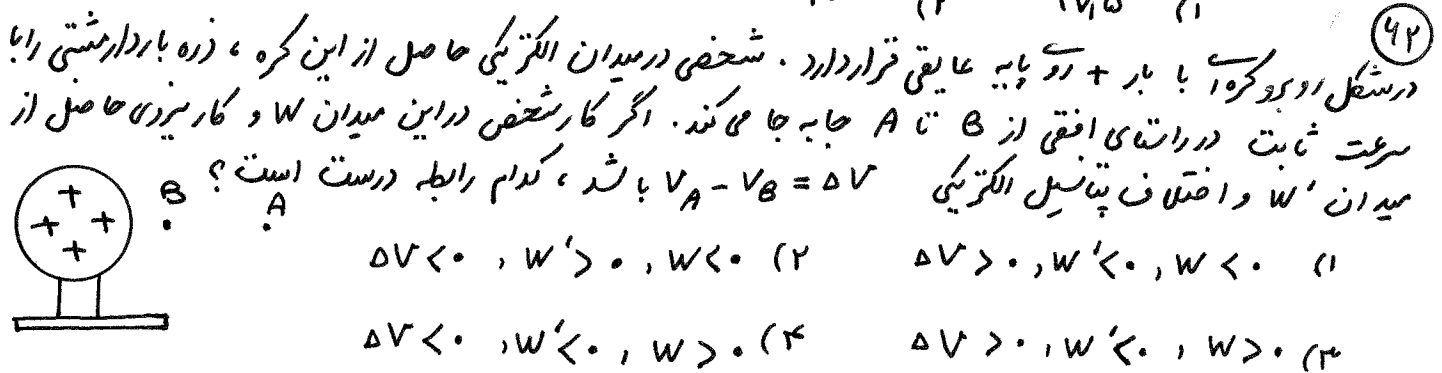 ۱) ۱۷٫۵ ۲)
۶۲
درشکل روبرو کره‌ای با بار + روی پایه عایقی قراردارد . شخصی درمیدان الکتریکی حاصل از این کره ، ذره باردارمثبتی رابا
سرعت ثابت در راستای افقی از B تا A جابه جا می‌کند. اگر کار شخص دراین میدان W و کار نیروی حاصل از
میدان W' و اختلاف پتانسیل الکتریکی V_A - V_B = ΔV باشد ، کدام رابطه درست است ؟
۱) ΔV > ۰ , W' < ۰ , W < ۰
۲) ΔV < ۰ , W' > ۰ , W < ۰
۳) ΔV > ۰ , W' < ۰ , W > ۰
۴) ΔV < ۰ , W' < ۰ , W > ۰
B
A
+
+ +
+